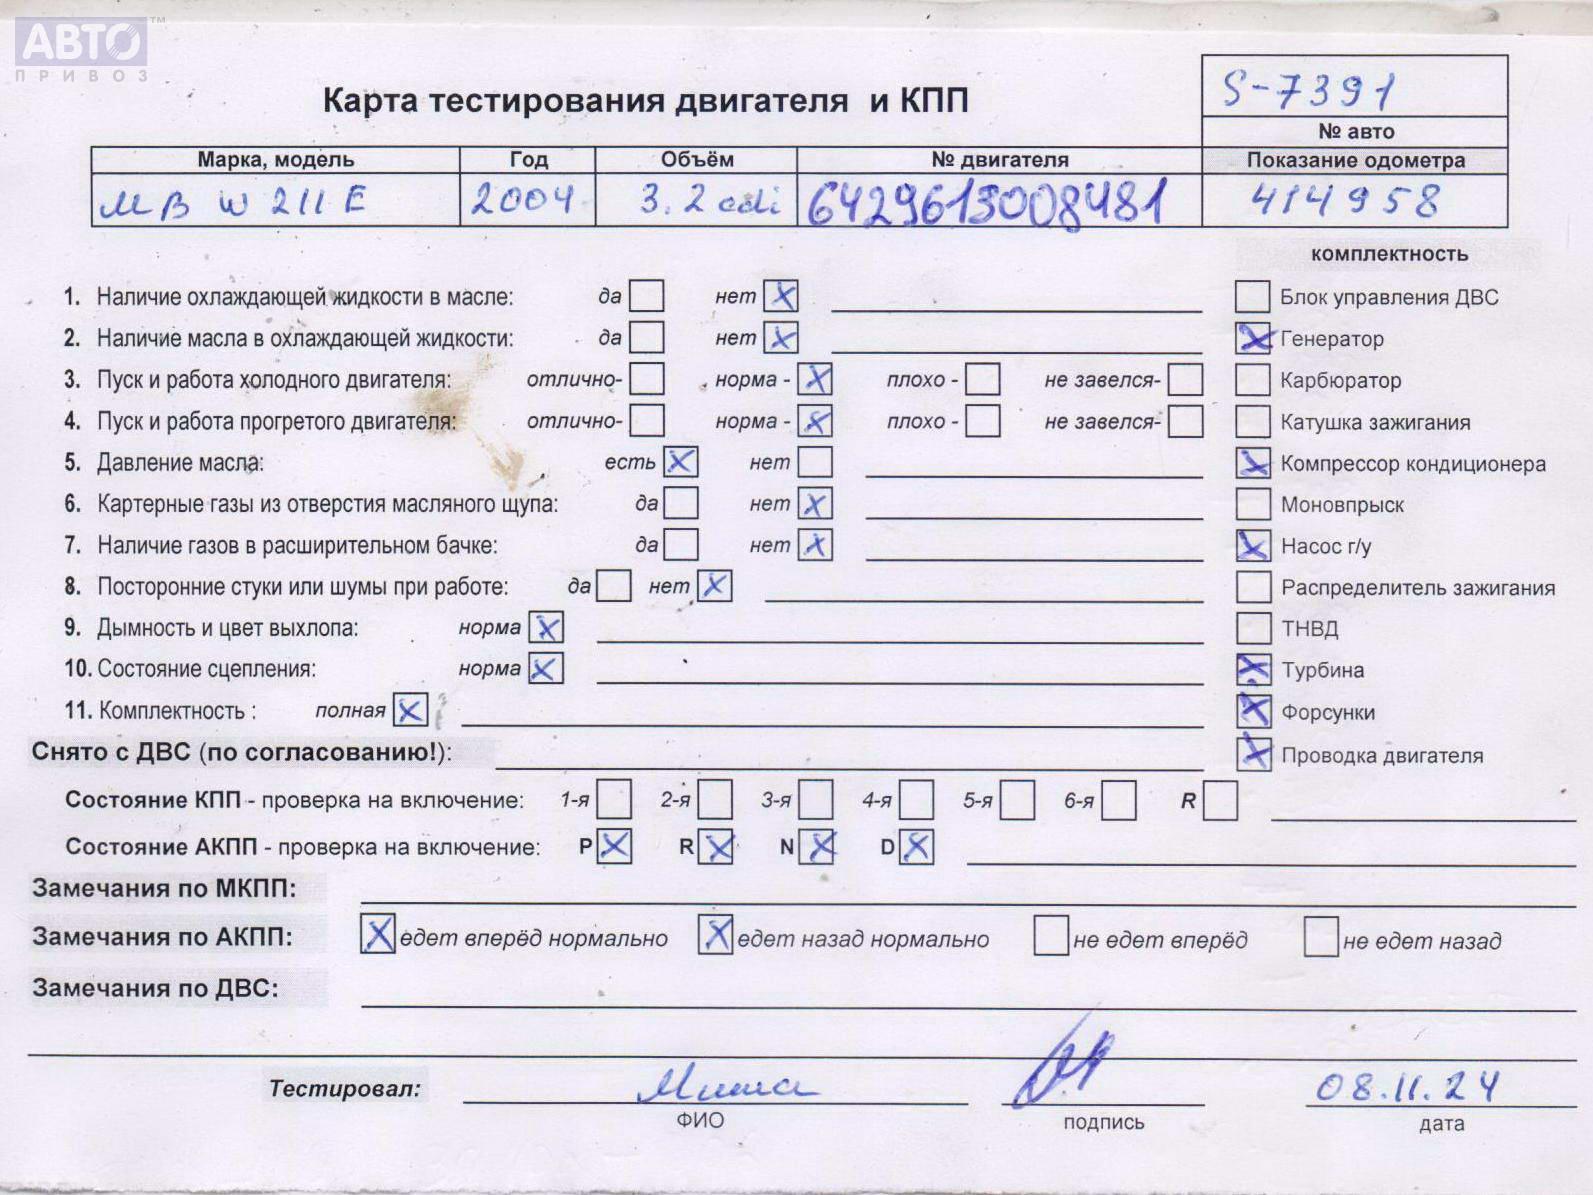 АВТО™
ПРИВОЗ
Карта тестирования двигателя и КПП
S-7391
№ авто
Марка, модель Год Объём № двигателя Показание одометра
МВ W 211 E 2004 3.2 cdi 6429613008481 414958
комплектность
1. Наличие охлаждающей жидкости в масле: да нет X Блок управления ДВС
2. Наличие масла в охлаждающей жидкости: да нет X X Генератор
3. Пуск и работа холодного двигателя: отлично- норма - X плохо - не завелся- Карбюратор
4. Пуск и работа прогретого двигателя: отлично- норма - X плохо - не завелся- Катушка зажигания
5. Давление масла: есть X нет X Компрессор кондиционера
6. Картерные газы из отверстия масляного щупа: да нет X Моновпрыск
7. Наличие газов в расширительном бачке: да нет X X Насос г/у
8. Посторонние стуки или шумы при работе: да нет X Распределитель зажигания
9. Дымность и цвет выхлопа: норма X ТНВД
10. Состояние сцепления: норма X X Турбина
11. Комплектность : полная X X Форсунки
Снято с ДВС (по согласованию!): X Проводка двигателя
Состояние КПП - проверка на включение: 1-я 2-я 3-я 4-я 5-я 6-я R
Состояние АКПП - проверка на включение: P X R X N X D X
Замечания по МКПП:
Замечания по АКПП: X едет вперёд нормально X едет назад нормально не едет вперёд не едет назад
Замечания по ДВС:
Тестировал: Миша 08.11.24
ФИО подпись дата